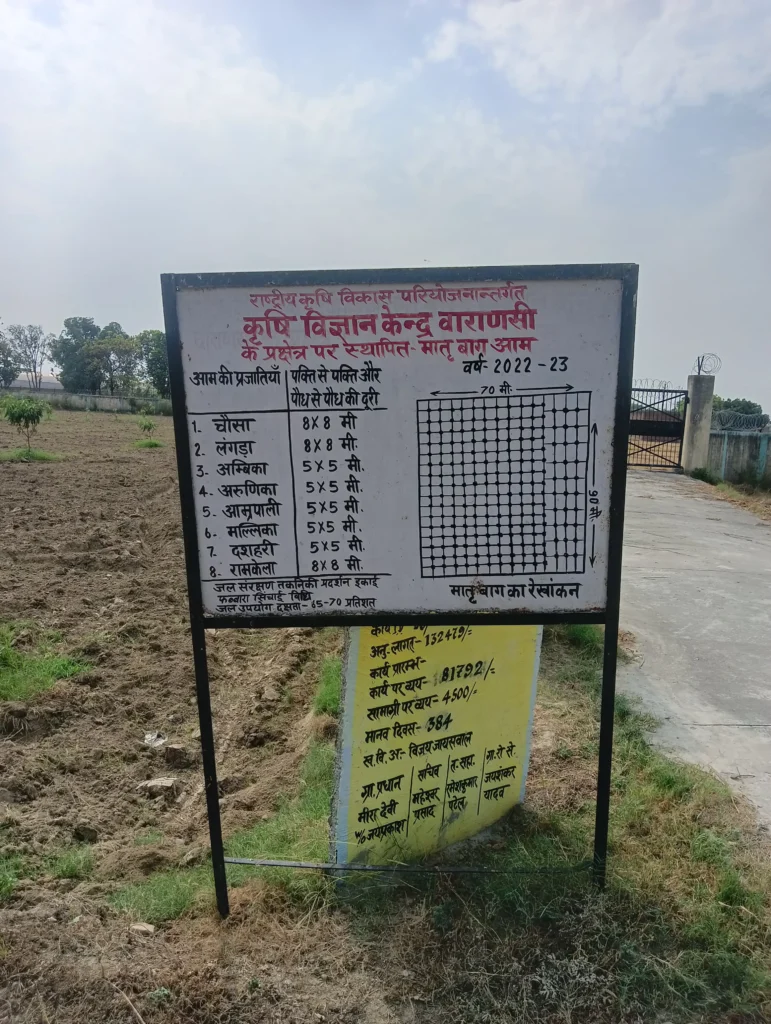 राष्ट्रीय कृषि विकास परियोजनान्तर्गत
कृषि विज्ञान केन्द्र वाराणसी
के प्रक्षेत्र पर स्थापित- मातृ बाग आम
वर्ष- 2022-23
आम की प्रजातियाँ पंक्ति से पंक्ति और
पौध से पौध की दूरी
1. चौसा 8×8 मी
2. लंगड़ा 8×8 मी.
3. अम्बिका 5×5 मी.
4. अरुणिका 5×5 मी.
5. आम्रपाली 5×5 मी.
6. मल्लिका 5×5 मी.
7. दशहरी 5×5 मी.
8. रामकेला 8×8 मी.
70 मी.
90 मी.
मातृ बाग का रेखांकन
जल संरक्षण तकनिकी प्रदर्शन इकाई
फव्वारा सिंचाई विधि
जल उपयोग दक्षता- 65-70 प्रतिशत
अनु. लागत- 132479/=
कार्य प्रारम्भ-
कार्य पर व्यय- 81792/=
सामाग्री पर व्यय- 4500/=
मानव दिवस- 384
ख.वि.अ- विजय जायसवाल
ग्रा. प्रधान सचिव त. सहा. ग्रा. रो से.
मीरा देवी महेश्वर रमेशकुमार जयशंकर
w/o जयप्रकाश प्रसाद पटेल यादव